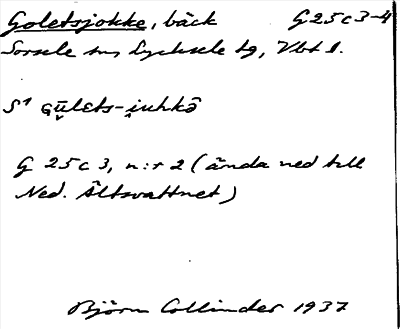 Goletsjokke, bäck G 25 c 3-4
Sorsele sn, Lycksele tg, Vbt l.
S¹ Gū̬lets-i̯uhkɔ̄
G 25 c 3, n:r 2 (ända ned till
Ned. Ältsvattnet)
Björn Collinder 1937